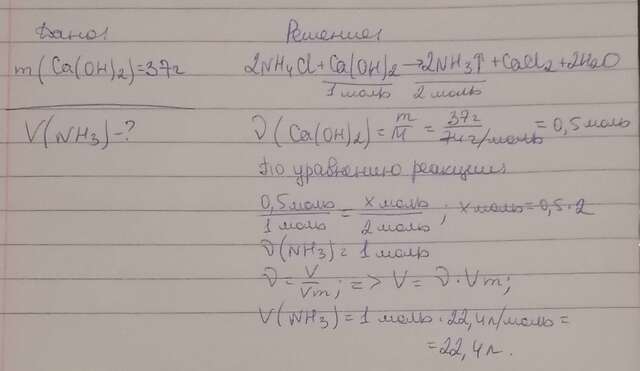 Дано: Решение:
m(Ca(OH)2)=37г 2NH4Cl+Ca(OH)2→2NH3↑+CaCl2+2H2O
1 моль 2 моль
V(NH3)-? ν(Ca(OH)2)=m/M=37г/74г/моль=0,5моль
По уравнению реакции:
0,5моль/1моль=x моль/2моль; x моль=0,5·2
ν(NH3)=1моль
ν=V/Vm; => V=ν·Vm;
V(NH3)=1моль·22,4л/моль=
=22,4л.